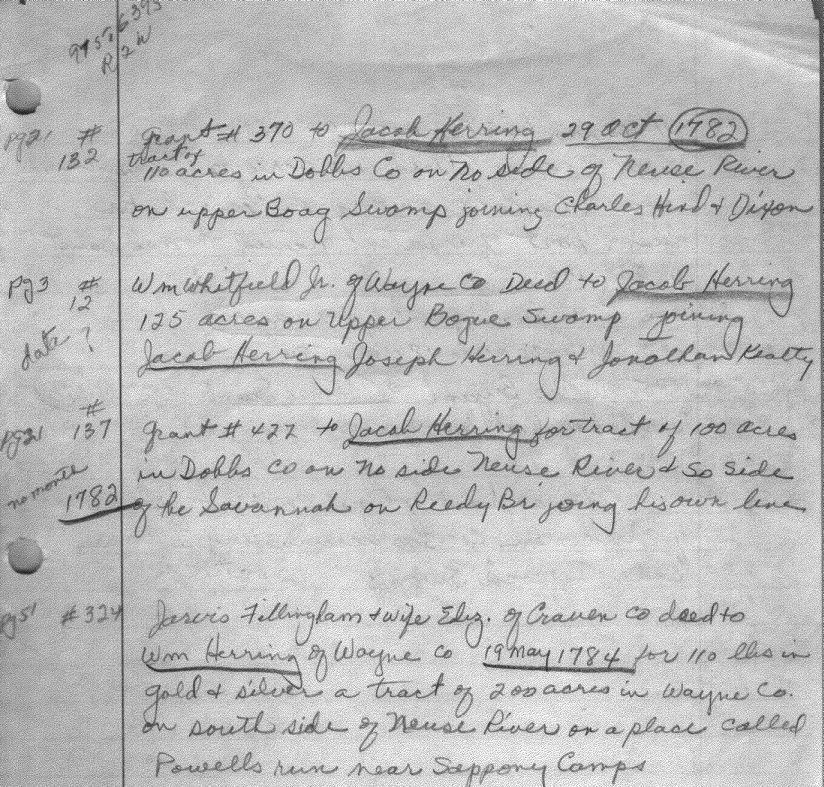 R 2 W
pg 21 # 132 Grant # 370 to Jacob Herring 29 Oct 1782
tract of
110 acres in Dobbs Co on No side of Neuse River
on upper Boag Swamp joining Charles Hind & Dixon
Pg 3 # 12 Wm Whitfield Jr. of Wayne Co Deed to Jacob Herring
125 acres on Upper Bogue Swamp joining
date ? Jacob Herring Joseph Herring & Jonathan Kealty
pg 21 # 137 Grant # 422 to Jacob Herring for tract of 100 acres
in Dobbs Co on No side Neuse River & So side
no month 1782 of the Savannah on Reedy Br joing his own line
pg 51 # 324 Jarvis Fillingham & wife Eliz. of Craven Co deed to
Wm Herring of Wayne Co 19 May 1784 for 110 lbs in
gold & silver a tract of 200 acres in Wayne Co.
on south side of Neuse River on a place called
Powells run near Sappony Camps